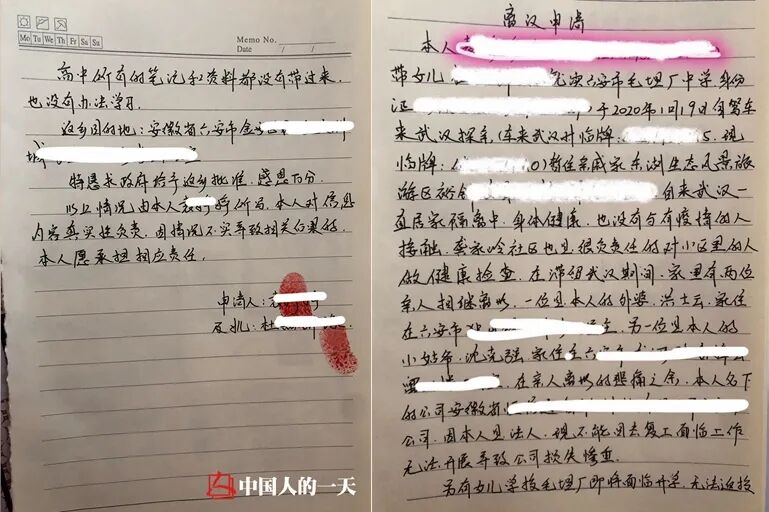 Memo No.
Date / /
Mo Tu We Th Fr Sa Su
高中所有的笔记和资料都没有带过来,
也没有办法学习.
返乡目的地: 安徽省六安市金
城
特恳求政府给予返乡批准. 感恩万分.
以上情况由本人 所写. 本人对信息
内容真实性负责, 因情况不实导致相关后果的.
本人愿承担相应责任.
申请人:
及女儿: 杜
中国人的一天
离汉申请
本人
带女儿 就读六安市毛坦厂中学 身份
证 于2020年1月19日自驾车
来武汉探亲, (车来武汉时临牌: 5. 现
临牌: 0) 暂住亲戚家东湖生态风景旅
游区 自来武汉一
直居家隔离中. 身体健康, 也没有与有疫情的人
接触. 龚家岭社区也是很负责任的对小区里的人
做健康检查. 在滞留武汉期间. 家里有两位
亲人相继离世, 一位是本人的外婆. 家住
在六安市 另一位是本人的
小姑爷. 沈克强 家住在六安市
在亲人离世的悲痛之余. 本人名下
的公司安徽省
公司, 因本人是法人. 现不能回去复工面临工作
无法开展导致公司损失惨重.
另有女儿学校毛坦厂即将面临开学, 无法返校